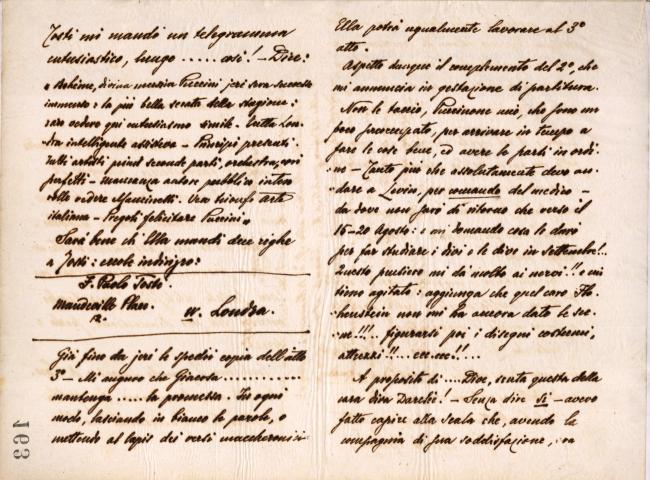 Tosti mi mandò un telegramma
entusiastico, lungo ..... così! – Dice:
"Bohème, divina musica Puccini jeri sera successo
immenso: la più bella serata della stagione:
raro vedere qui entusiasmo simile. Tutta Lon-
dra intelligente assisteva – Principi presenti.
tutti artisti prime seconde parti, orchestra, cori
perfetti – mancanza autore pubblico intero
volle vedere Mancinelli. Vero trionfo arte
italiana – Pregoti felicitare Puccini"
Sarà bene ch'Ella mandi due righe
a Tosti: eccole indirizzo:
F. Paolo Tosti.
Mandeville Place.
12.
W. Londra.
Già fino da jeri le spedii copia dell'atto
3º – Mi auguro che Giacosa ............
mantenga ..... la promessa. In ogni
modo, lasciando in bianco le parole, o
mettendo al lapis dei versi maccheronici
163
Ella potrà ugualmente lavorare al 3º
atto.
Aspetto dunque il complemento del 2º, che
mi annuncia in gestazione di partitura.
Non le taccio, Puccinone mio, che sono un
poco preoccupato, per arrivare in tempo a
fare le cose bene, ed avere le parti in ordi-
ne – Tanto più che assolutamente devo an-
dare a Levico, per comando del medico –
da dove non sarò di ritorno che verso il
15-20 Agosto: e mi domando cosa le darò
per far studiare i divi e le dive in settembre!..
Questo pensiero mi dà molto ai nervi!! e mi
tiene agitato: aggiunga che quel caro Ho-
henstein non mi ha ancora dato le sce-
ne!!!.. figurarsi poi i disegni costumi,
attrezzi!!.. ecc: ecc:!!....
A proposito di ....Dive, senta questa della
cara diva Darclée! – Senza dire sì – avevo
fatto capire alla Scala che, avendo la
compagnia di sua soddisfazione,